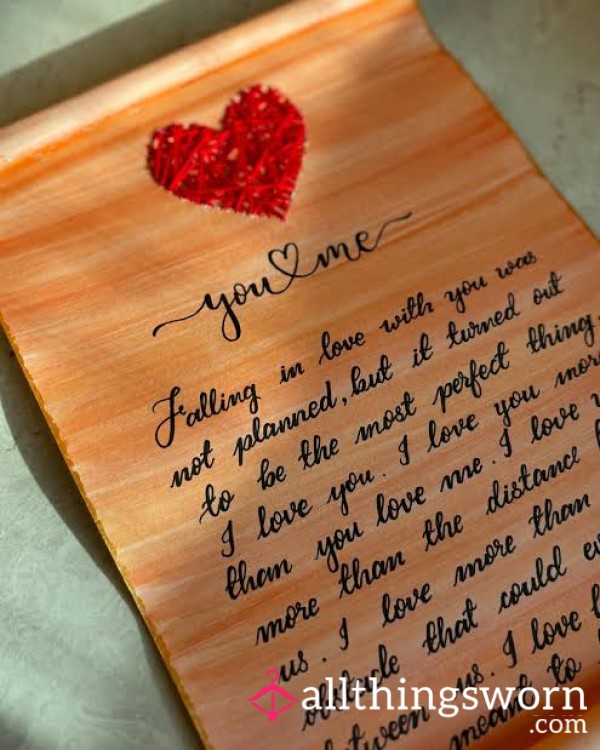 you me
Falling in love with you was
not planned, but it turned out
to be the most perfect thing.
I love you. I love you more
than you love me. I love
more than the distance
us. I love more than
obstacle that could
between us. I love
meant to
allthingsworn
.com